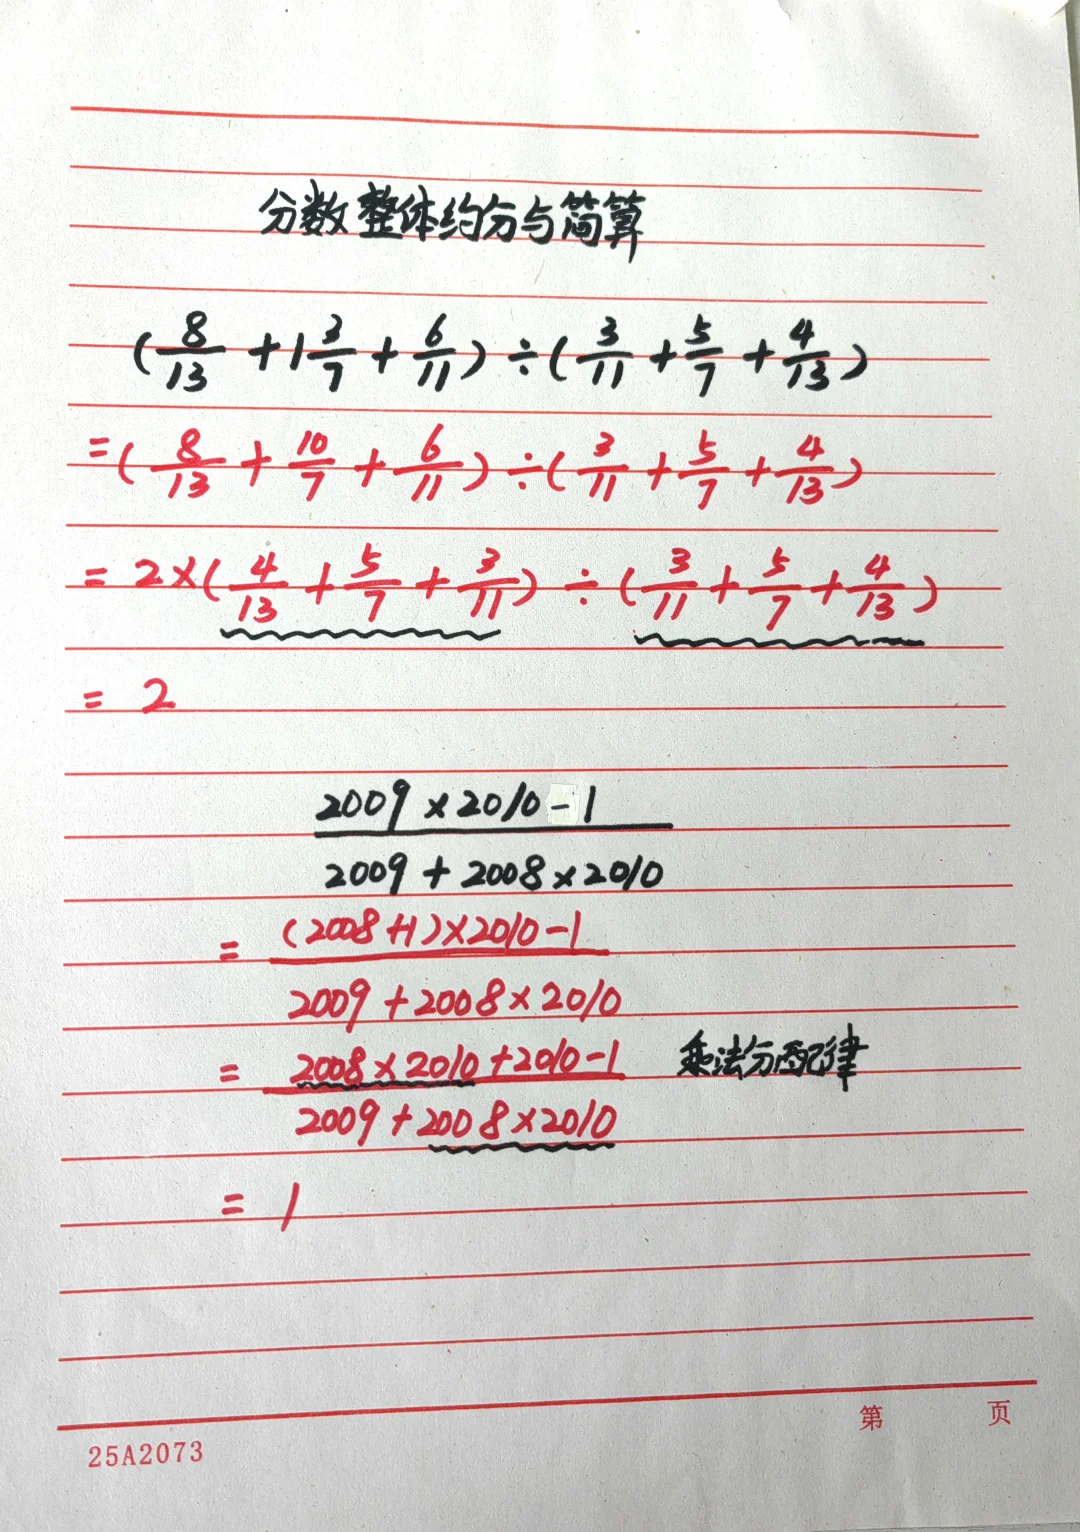 分数整体约分与简算
(8/13 + 1 3/7 + 6/11) ÷ (3/11 + 5/7 + 4/13)
= (8/13 + 10/7 + 6/11) ÷ (3/11 + 5/7 + 4/13)
= 2×(4/13 + 5/7 + 3/11) ÷ (3/11 + 5/7 + 4/13)
= 2
2009 × 2010 - 1
2009 + 2008 × 2010
= (2008+1)×2010-1
2009 + 2008 × 2010
= 2008×2010+2010-1 乘法分配律
2009 + 2008×2010
= 1
第 页
25A2073